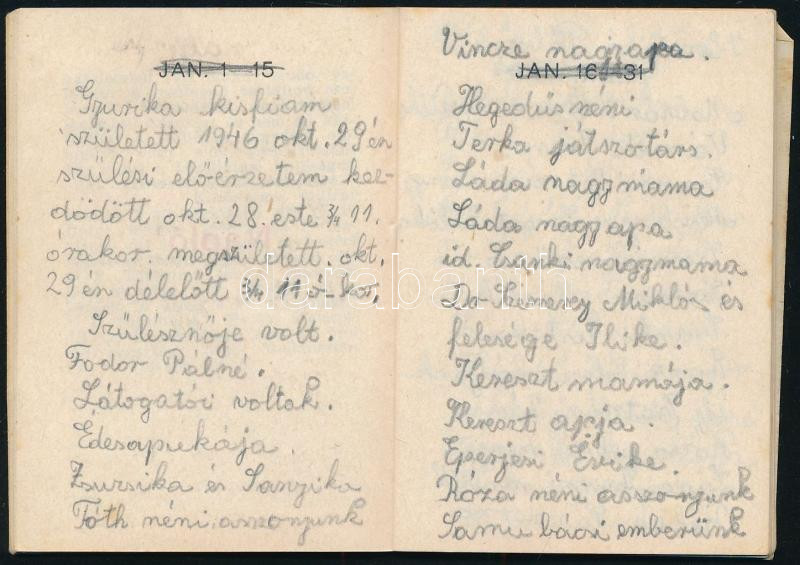 JAN. 1—15
Gyurika kisfiam
született 1946 okt. 29én
szülési előérzetem kez-
dödött okt. 28. este ¾ 11.
órakor. megszületett. okt.
29én délelőtt ¾ 11 ó-kor,
Szülésznője volt.
Fodor Pálné.
Látogatói voltak.
Édesapukája.
Zsuzsika és Sanyika
Tóth néni asszonyunk
Vincze nagyapa.
JAN. 16—31
Hegedüs néni
Terka játszótárs.
Láda nagymama
Láda nagyapa
id. Csánki nagymama
Dr Miklós és
felesége Ilike.
Kereszt mamája.
Kereszt apja.
Eperjesi Évike.
Róza néni asszonyunk
Samu bácsi emberünk
darabanth